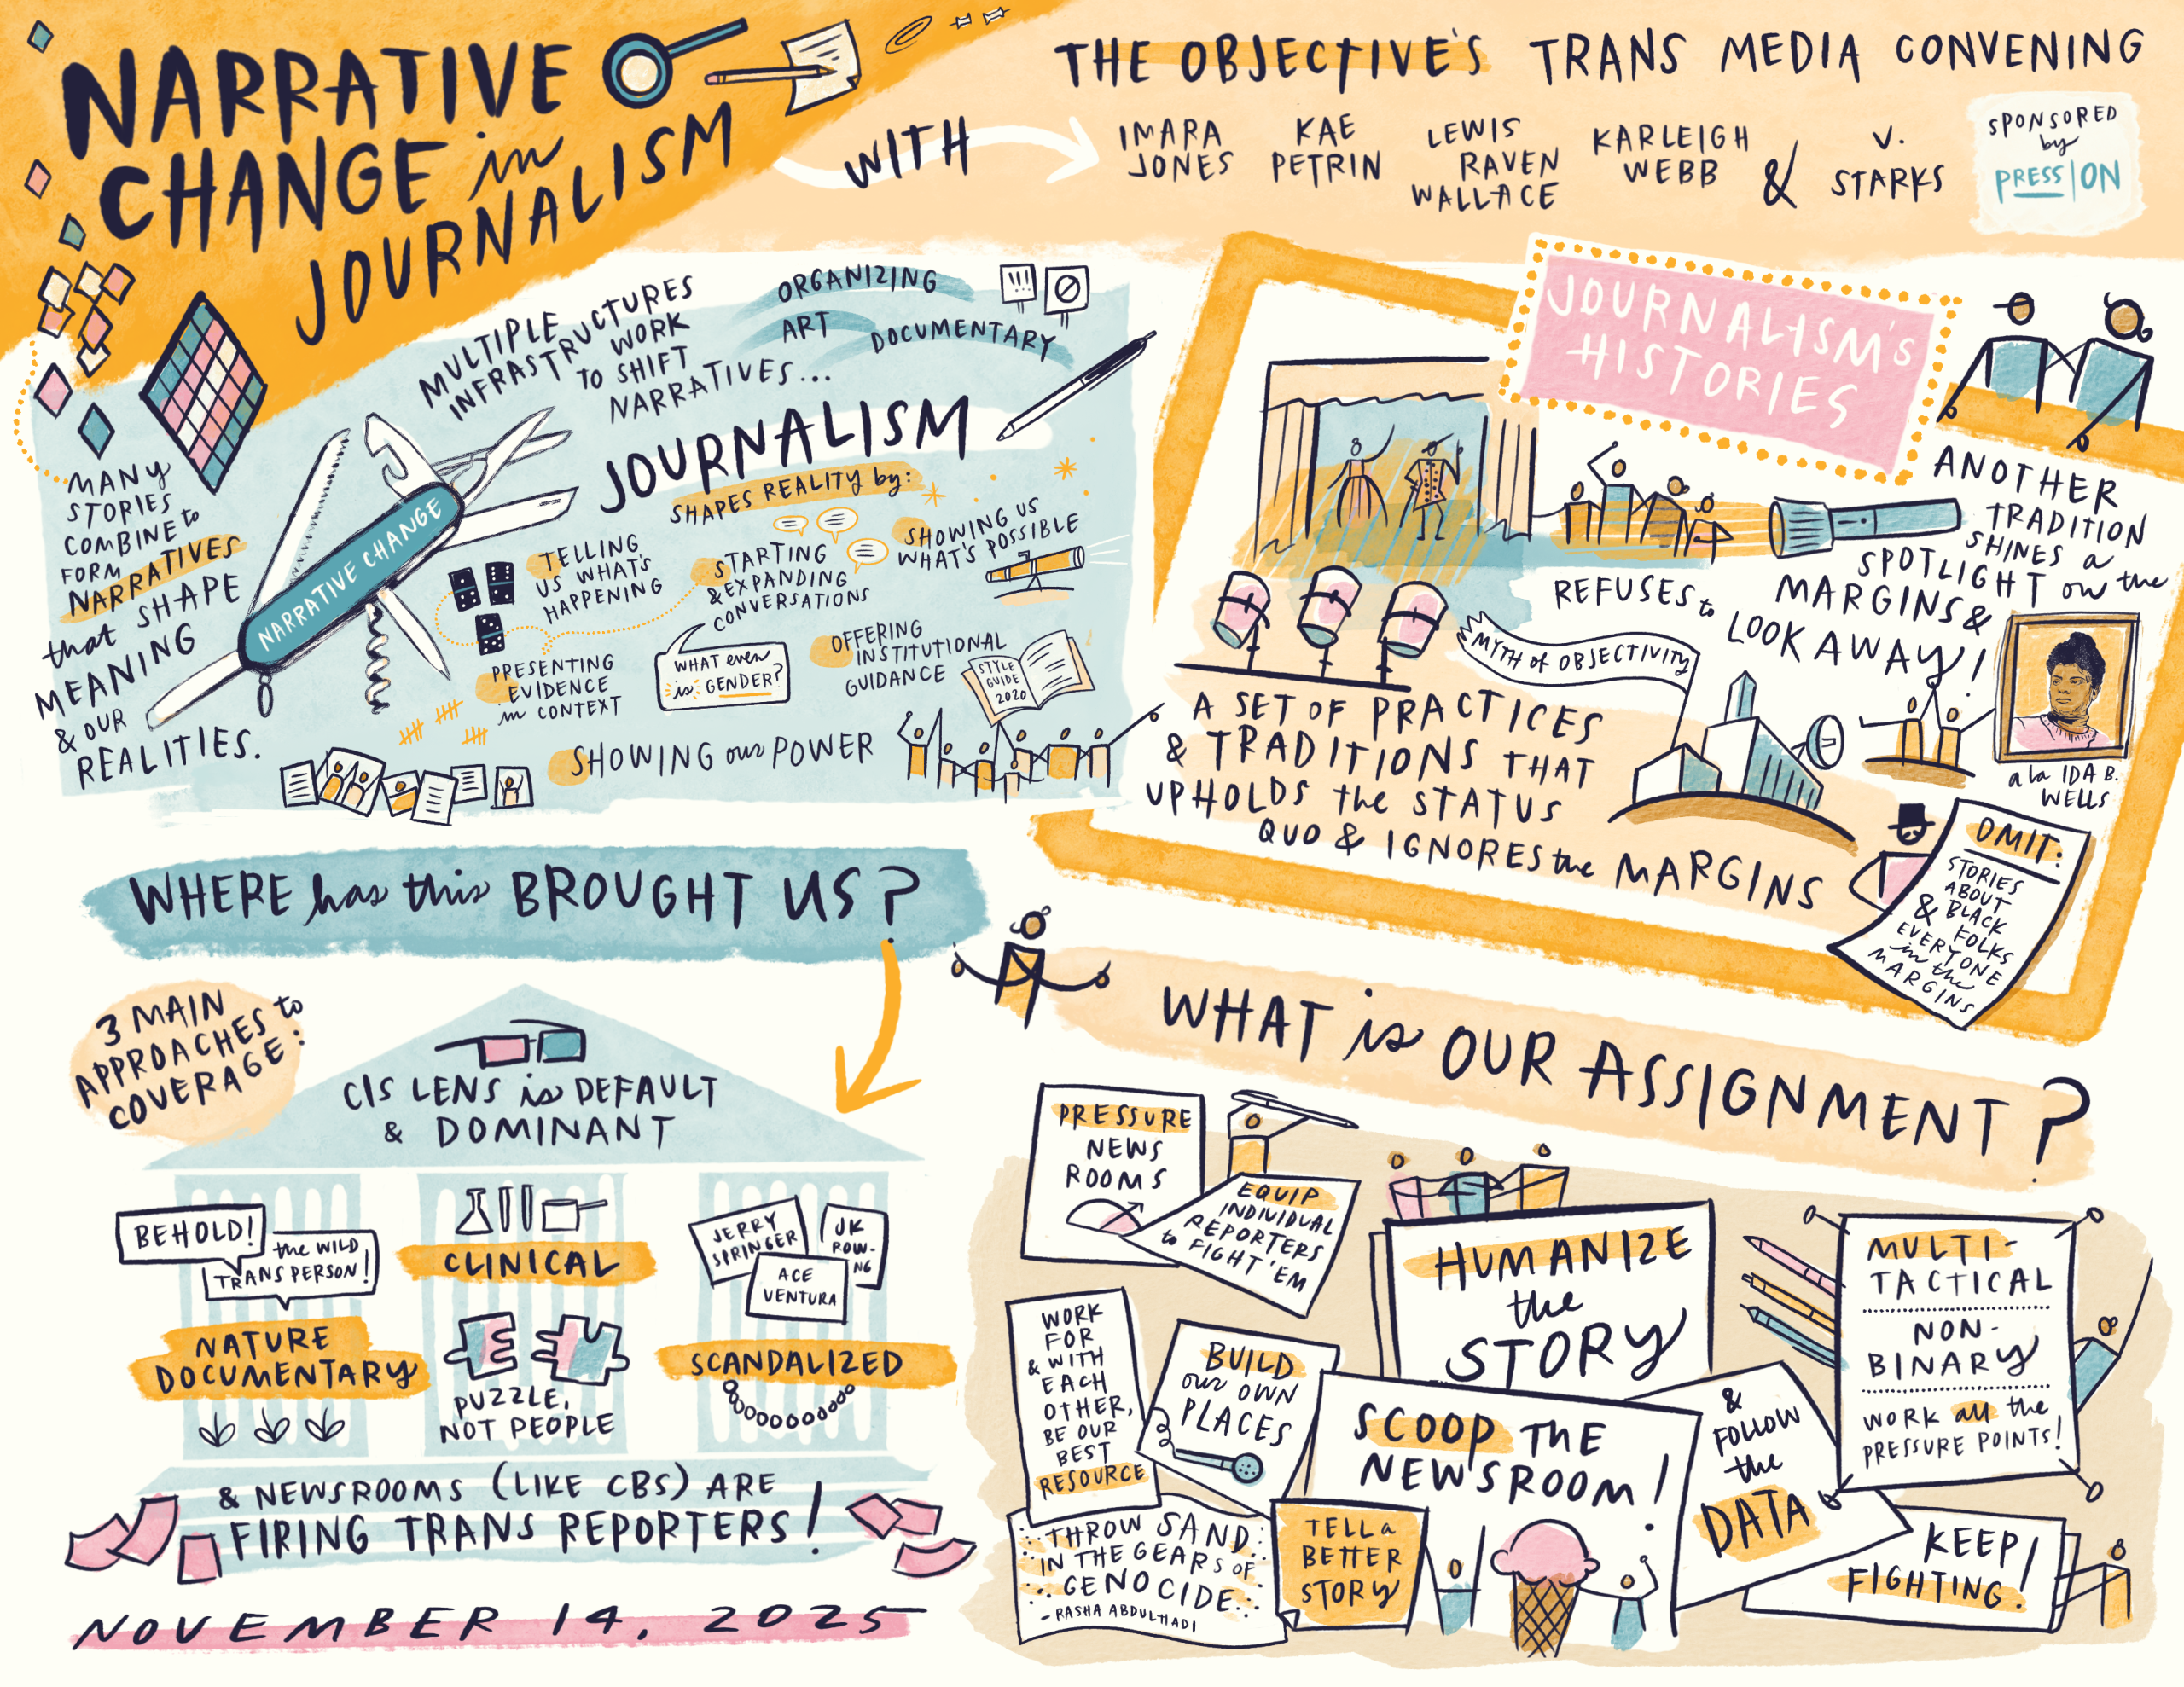 NARRATIVE
CHANGE in
JOURNALISM
WITH
THE OBJECTIVE'S TRANS MEDIA CONVENING
IMARA
JONES
KAE
PETRIN
LEWIS
RAVEN
WALLACE
KARLEIGH
WEBB
&
V.
STARKS
SPONSORED
by
PRESS|ON
MANY
STORIES
COMBINE to
FORM
NARRATIVES
that SHAPE
MEANING
& OUR
REALITIES.
NARRATIVE CHANGE
MULTIPLE
INFRASTRUCTURES
WORK
TO SHIFT
NARRATIVES...
ORGANIZING
ART
DOCUMENTARY
!!!
JOURNALISM
SHAPES REALITY by:
TELLING
US WHAT'S
HAPPENING
STARTING
& EXPANDING
CONVERSATIONS
SHOWING US
WHAT'S POSSIBLE
PRESENTING
EVIDENCE
in CONTEXT
WHAT even
is GENDER?
OFFERING
INSTITUTIONAL
GUIDANCE
STYLE
GUIDE
2020
SHOWING our POWER
JOURNALISM'S
HISTORIES
ANOTHER
TRADITION
SHINES a
SPOTLIGHT on the
MARGINS &
REFUSES to
LOOK AWAY!
a la IDA B.
WELLS
MYTH of OBJECTIVITY
A SET OF PRACTICES
& TRADITIONS THAT
UPHOLDS the STATUS
QUO & IGNORES the MARGINS
OMIT:
STORIES
ABOUT
BLACK
FOLKS
& EVERYONE
in the
MARGINS
WHERE has this BROUGHT US?
3 MAIN
APPROACHES to
COVERAGE:
CIS LENS is DEFAULT
& DOMINANT
BEHOLD!
the WILD
TRANS PERSON!
NATURE
DOCUMENTARY
CLINICAL
PUZZLE,
NOT PEOPLE
JERRY
SPRINGER
JK
ROW-
NG
ACE
VENTURA
SCANDALIZED
& NEWSROOMS (LIKE CBS) ARE
FIRING TRANS REPORTERS!
NOVEMBER 14, 2025
WHAT is OUR ASSIGNMENT?
PRESSURE
NEWS
ROOMS
EQUIP
INDIVIDUAL
REPORTERS
to FIGHT 'EM
HUMANIZE
the
STORY
MULTI-
TACTICAL
NON-
BINARY
WORK all the
PRESSURE POINTS!
WORK
FOR
& WITH
EACH
OTHER,
BE OUR
BEST
RESOURCE
BUILD
our OWN
PLACES
SCOOP THE
NEWSROOM!
& 
FOLLOW
the
DATA
THROW SAND
IN THE GEARS OF
GENOCIDE
- RASHA ABDULHADI
TELL a
BETTER
STORY
KEEP
FIGHTING!